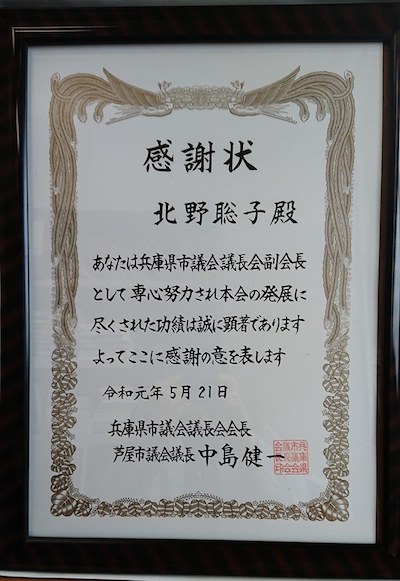 感謝状
北野聡子殿
あなたは兵庫県市議会議長会副会長
として専心努力され本会の発展に
尽くされた功績は誠に顕著であります
よってここに感謝の意を表します
令和元年5月21日
兵庫県市議会議長会会長
芦屋市議会議長 中島健一